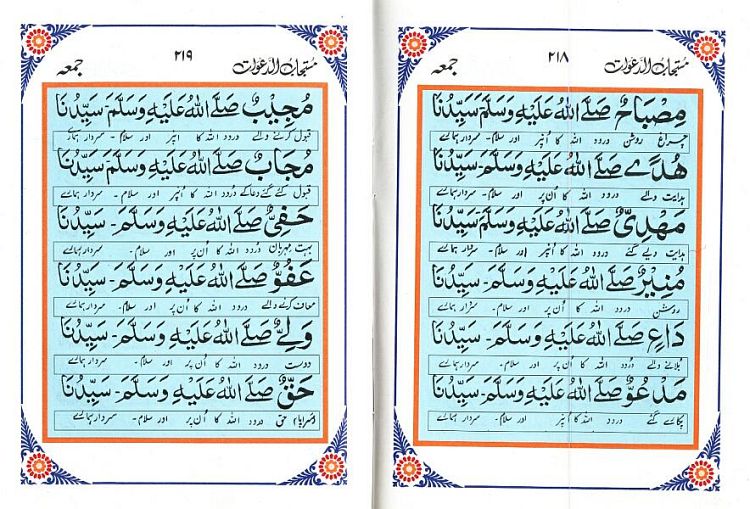 مستجاب الدعوات ٢١٨ جمعہ
مِصْبَاحٌ صَلَّے اللهُ عَلَيْهِ وَسَلَّمَ سَيِّدُنَا
چراغ روشن درود اللہ کا اُنپر اور سلام۔ سردار ہمارے
هُدًے صَلَّے اللهُ عَلَيْهِ وَسَلَّمَ۔ سَيِّدُنَا
ہدایت والے درود اللہ کا اُن پر اور سلام۔ سردار ہمارے
مَهْدِیٌّ صَلَّے اللهُ عَلَيْهِ وَسَلَّمَ سَيِّدُنَا
ہدایت دیے گئے درود اللہ کا اُنپر اور سلام۔ سردار ہمارے
مُنِيْرٌ صَلَّے اللهُ عَلَيْهِ وَسَلَّمَ۔ سَيِّدُنَا
روشن درود اللہ کا اُن پر اور سلام۔ سردار ہمارے
دَاعٍ صَلَّے اللهُ عَلَيْهِ وَسَلَّمَ۔ سَيِّدُنَا
بلانے والے درود اللہ کا اُن پر اور سلام۔ سردار ہمارے
مَدْعُوٌّ صَلَّے اللهُ عَلَيْهِ وَسَلَّمَ۔ سَيِّدُنَا
پکارے گئے درود اللہ کا اُنپر اور سلام۔ سردار ہمارے
مستجاب الدعوات ٢١٩ جمعہ
مُجِيْبٌ صَلَّے اللهُ عَلَيْهِ وَسَلَّمَ۔ سَيِّدُنَا
قبول کرنے والے درود اللہ کا اُنپر اور سلام۔ سردار ہمارے
مُجَابٌ صَلَّے اللهُ عَلَيْهِ وَسَلَّمَ سَيِّدُنَا
قبول کئے گئے دعا کے درود اللہ کا اُنپر اور سلام۔ سردار ہمارے
حَفِیٌّ صَلَّے اللهُ عَلَيْهِ وَسَلَّمَ۔ سَيِّدُنَا
بہت مہربان درود اللہ کا اُن پر اور سلام۔ سردار ہمارے
عَفُوٌّ صَلَّے اللهُ عَلَيْهِ وَسَلَّمَ۔ سَيِّدُنَا
معاف کرنے والے درود اللہ کا اُن پر اور سلام۔ سردار ہمارے
وَلِیٌّ صَلَّے اللهُ عَلَيْهِ وَسَلَّمَ۔ سَيِّدُنَا
دوست درود اللہ کا اُن پر اور سلام۔ سردار ہمارے
حَقٌّ صَلَّے اللهُ عَلَيْهِ وَسَلَّمَ۔ سَيِّدُنَا
(سراپا) حق درود اللہ کا اُن پر اور سلام۔ سردار ہمارے